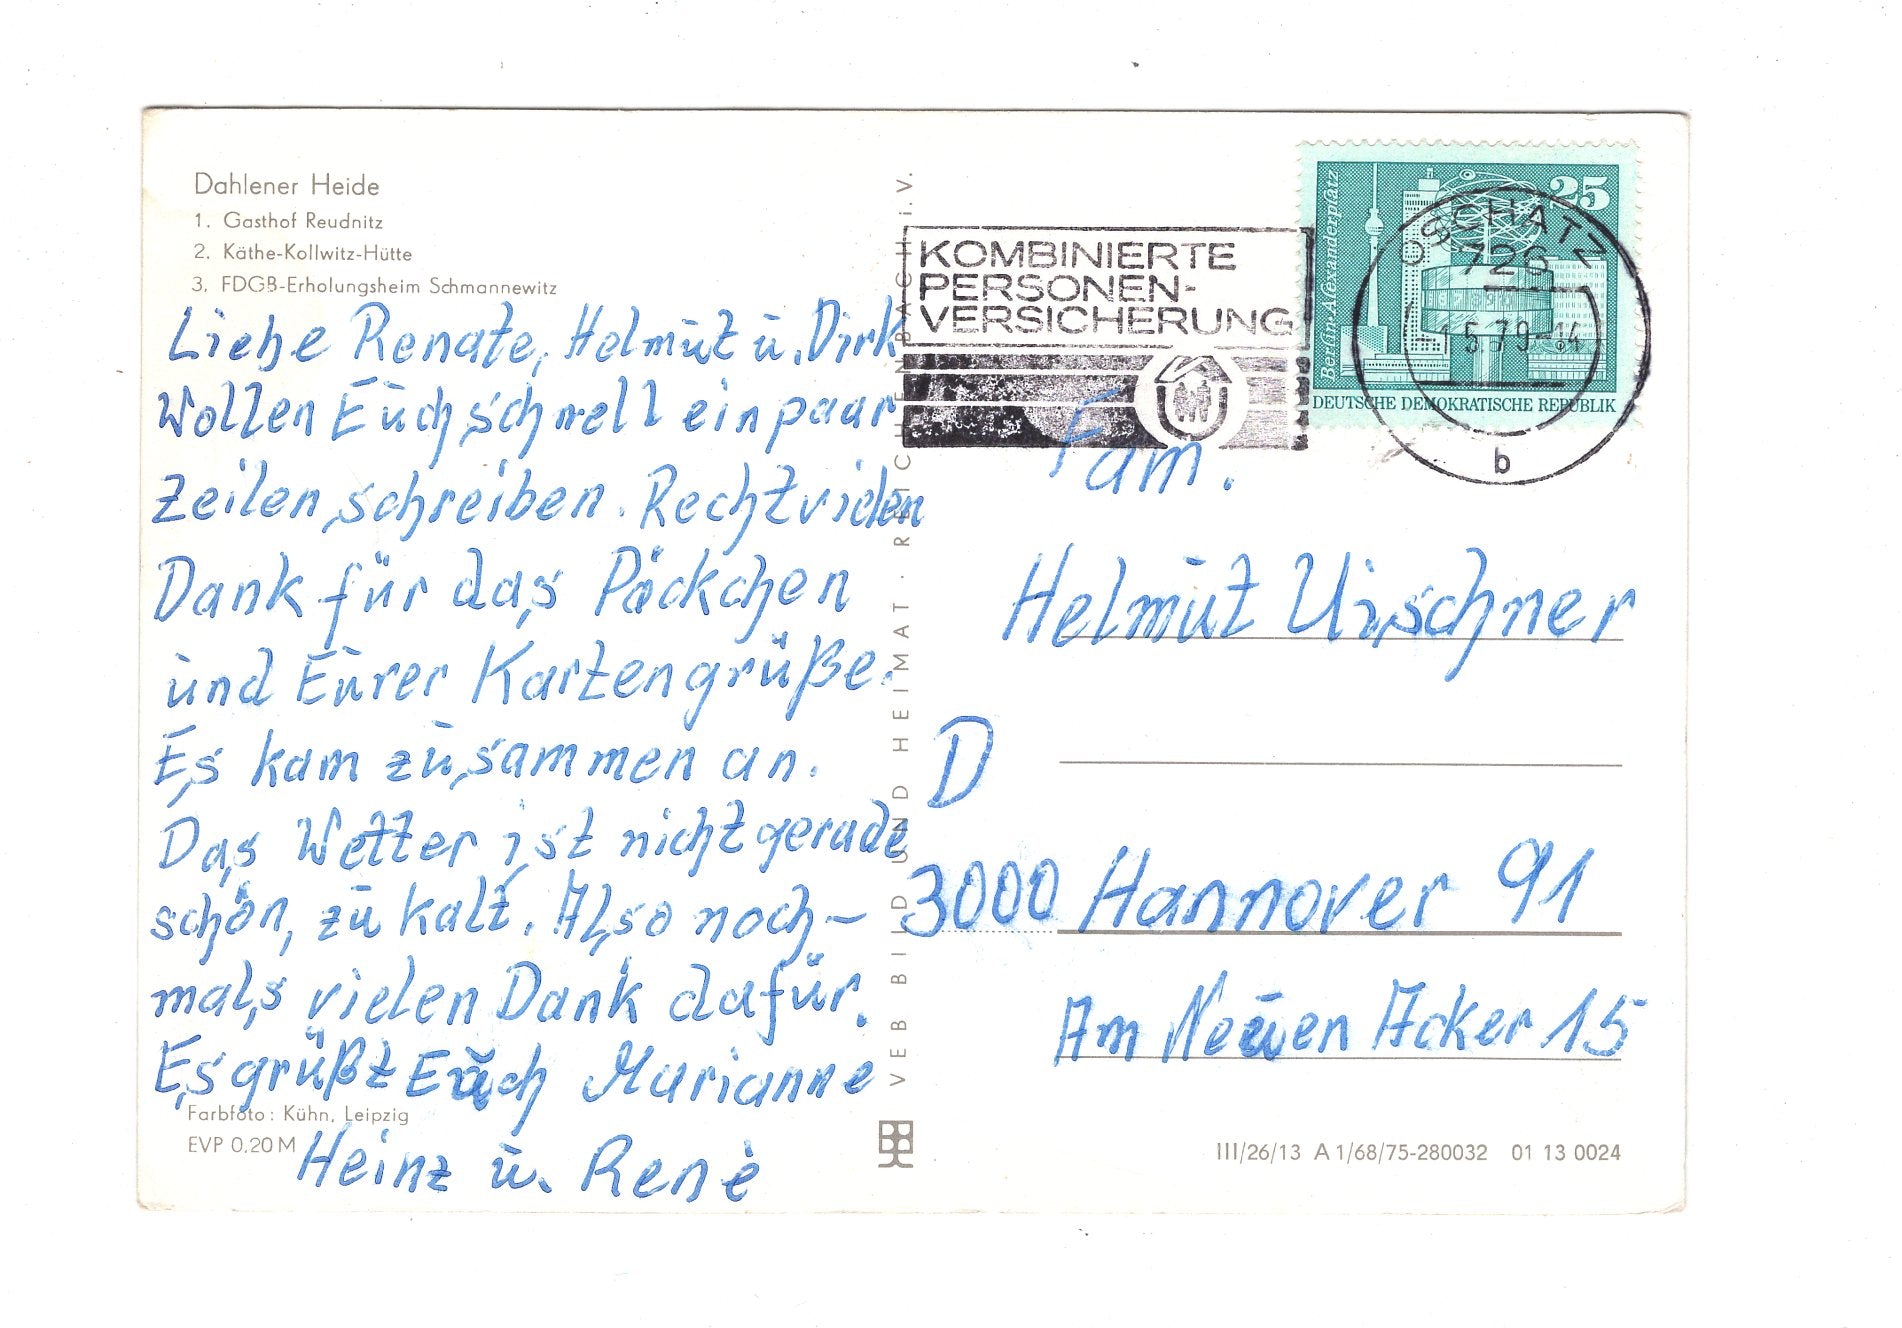 Dahlener Heide
1. Gasthof Reudnitz
2. Käthe-Kollwitz-Hütte
3. FDGB-Erholungsheim Schmannewitz
Liebe Renate, Helmut u. Dirk
Wollen Euch schnell ein paar
Zeilen schreiben. Recht vielen
Dank für das Päckchen
und Eurer Kartengrüße.
Es kam zusammen an.
Das Wetter ist nicht gerade
schön, zu kalt. Also noch-
mals vielen Dank dafür.
Es grüßt Euch Marianne
Heinz u. Renè
Farbfoto: Kühn, Leipzig
EVP 0.20 M
VEB BILD UND HEIMAT · REICHENBACH i. V.
KOMBINIERTE
PERSONEN-
VERSICHERUNG
Berlin-Alexanderplatz
25
DEUTSCHE DEMOKRATISCHE REPUBLIK
OSCHATZ
726
-1.5.79-14
b
Fam.
Helmut Uischner
D
3000 Hannover 91
Am Neuen Acker 15
III/26/13 A 1/68/75-280032 01 13 0024